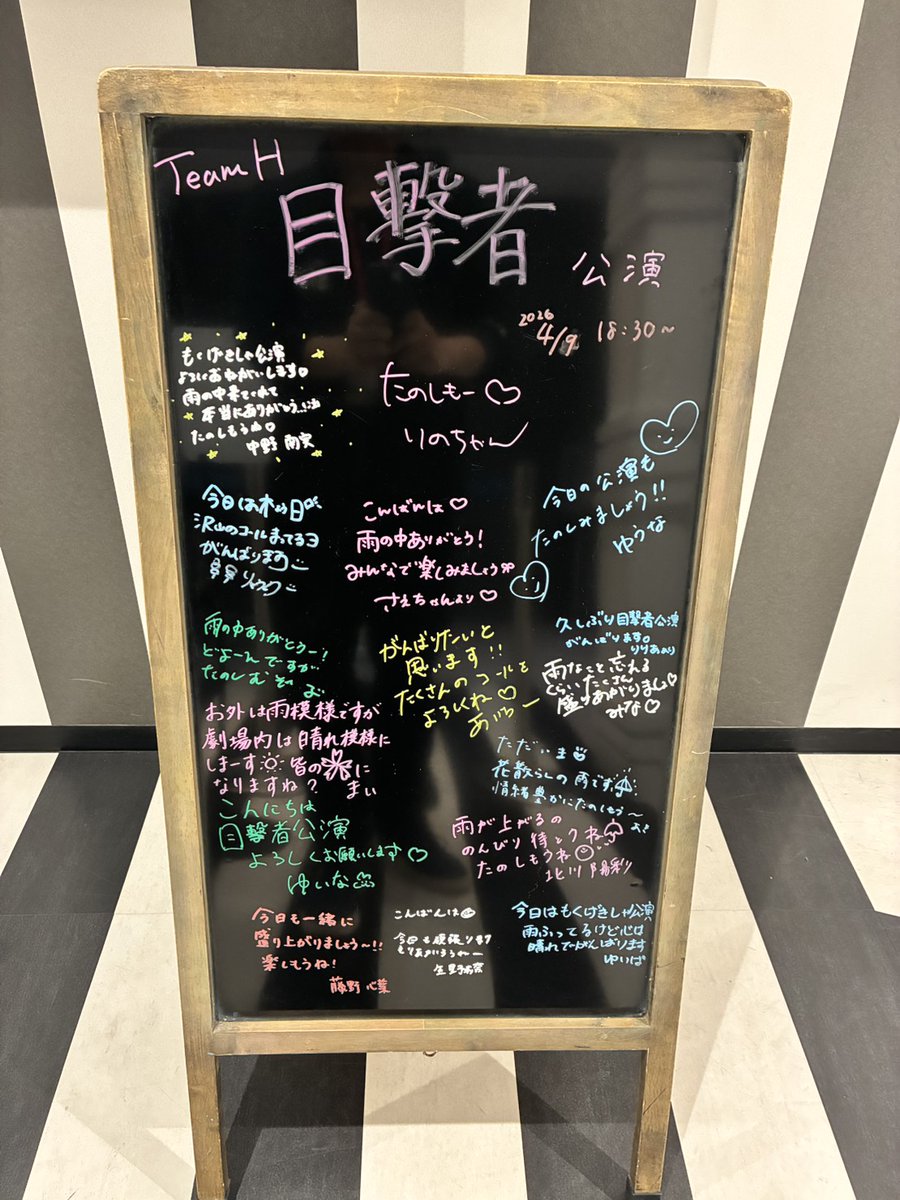 Team H
目撃者 公演
2026 4/9 18:30~
もくげきしゃ公演
よろしくおねがいします♡
雨の中来てくれて
本当にありがとう
たのしもうね♡
中野 南実
たのしもー♡
りのちゃん
今日の公演も
たのしみましょう!!
ゆうな
今日は木よう日
沢山のコールまってるヨ
がんばります
こんばんは♡
雨の中ありがとう!
みんなで楽しみましょう
さえちゃんより♡
久しぶり目撃者公演
がんばります。
りりあより
雨の中ありがとうー!
どよーんですが
たのしむぞ
がんばりたいと
思います!!
たくさんのコールを
よろしくね♡
雨なこと忘れる
くらいたくさん
盛りあがりましょ♡
みな♡
お外は雨模様ですが
劇場内は晴れ模様に
しまーす 皆の🌸に
なりますね? まい
ただいま
花散らしの雨です
雨が上がるの
のんびり待とうね
たのしもうね
北川 陽彩
こんにちは
目撃者公演
よろしくお願いします♡
ゆいな
今日も一緒に
盛り上がりましょう〜!!
楽しもうね!
藤野 心葉
こんばんは
今日も頑張ります
今日はもくげきしゃ公演
雨ふってるけど心は
晴れでがんばります
ゆいぱ